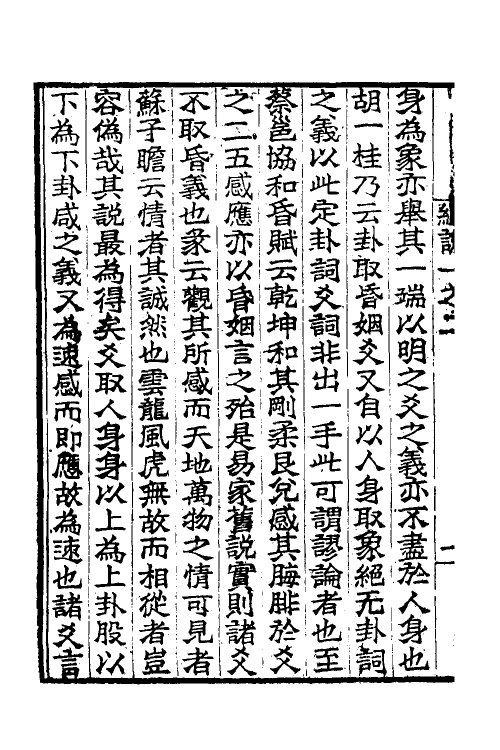 身為象亦舉其一端以明之爻之義亦不盡於人身也
胡一桂乃云卦取昏姻爻又自以人身取象絕无卦詞
之義以此定卦詞爻詞非出一手此可謂謬論者也至
蔡邕協和昏賦云乾坤和其剛柔艮兌感其脢腓於爻
之二五感應亦以昏姻言之殆是易家舊說實則諸爻
不取昏義也彖云觀其所感而天地萬物之情可見者
蘇子瞻云情者其誠然也雲龍風虎無故而相從者豈
容偽哉其說最為得矣爻取人身身以上為上卦股以
下為下卦咸之義又為速感而即應故為速也諸爻言